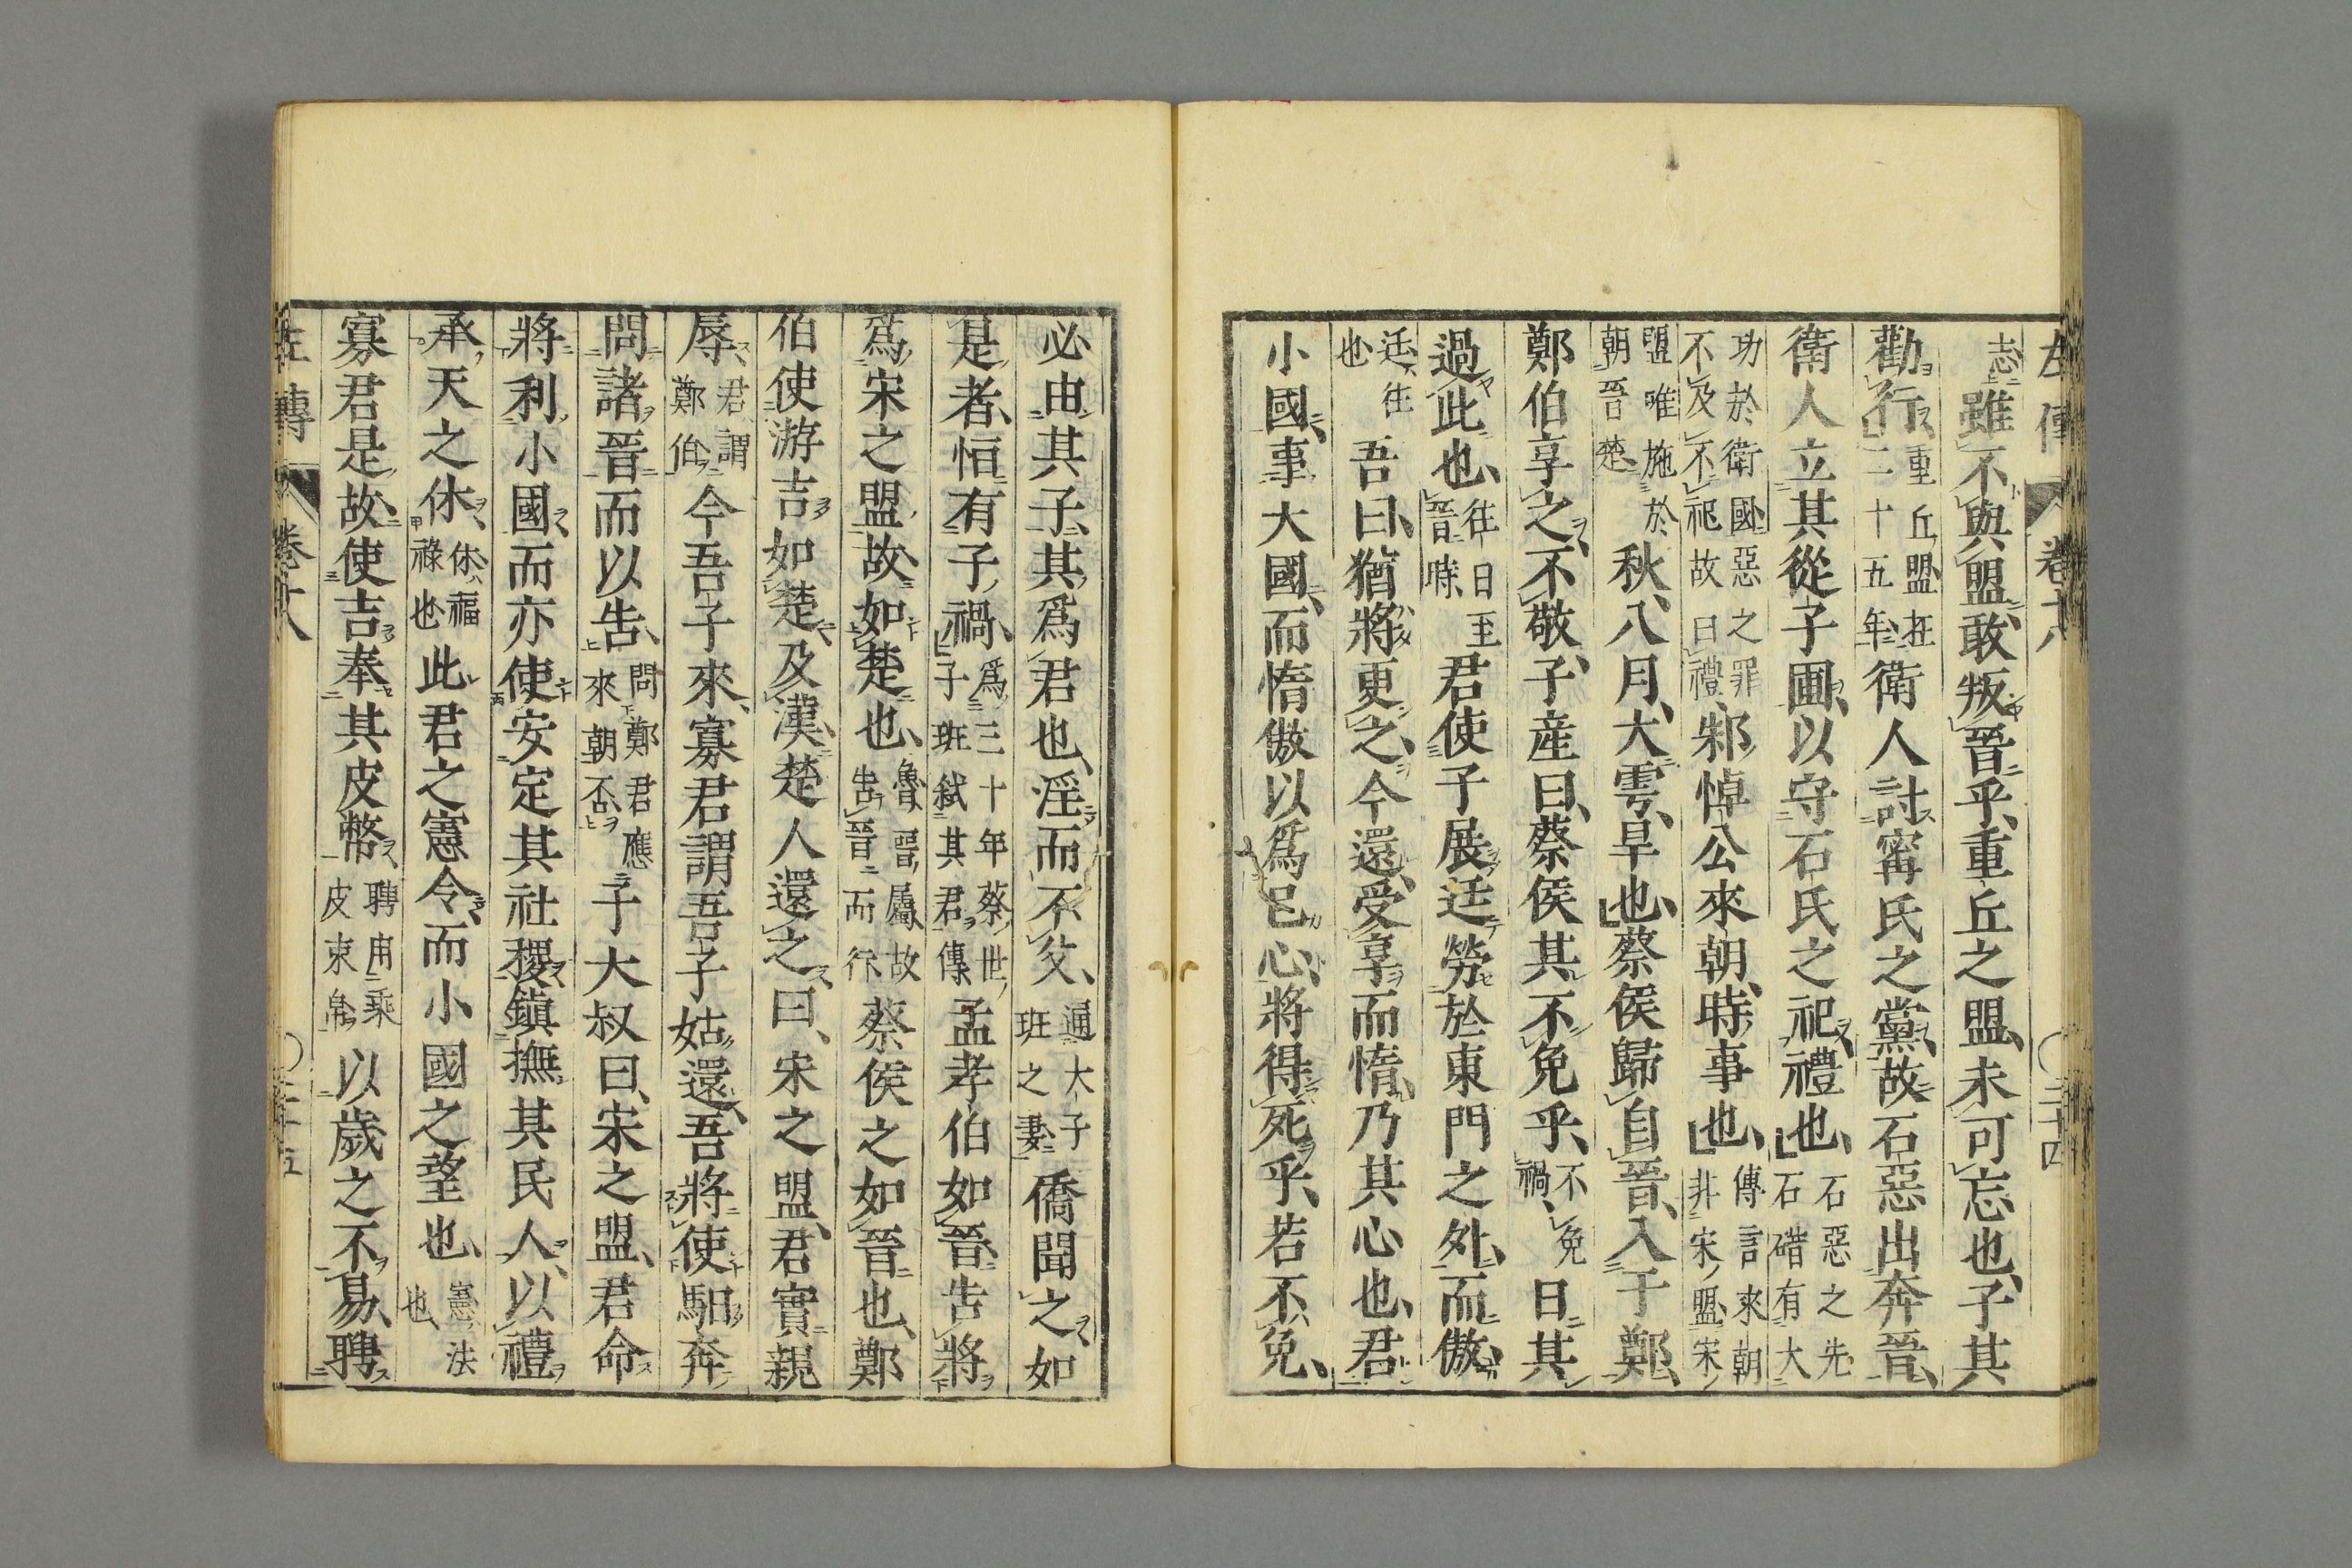 左傳 卷十八 三十四
志雖不與盟敢叛晉乎重丘之盟未可忘也子其
勸行重丘盟在二十五年衛人討甯氏之黨故石惡出奔晉
衛人立其從子圃以守石氏之祀禮也石惡之先石碏有大
功於衛國惡之罪不及不祀故曰禮邾悼公來朝時事也傳言來朝非宋盟宋
盟唯施於朝晉楚秋八月大雩旱也蔡侯歸自晉入于鄭
鄭伯享之不敬子産曰蔡侯其不免乎不免禍日其
過此也往日至晉時君使子展迋勞於東門之外而傲
迋往也吾曰猶將更之今還受享而惰乃其心也君
小國事大國而惰傲以爲己心將得死乎若不免
必由其子其爲君也淫而不父通大子班之妻僑聞之如
是者恒有子禍爲三十年蔡世子班弑其君傳孟孝伯如晉告將
爲宋之盟故如楚也魯晉屬故告晉而行蔡侯之如晉也鄭
伯使游吉如楚及漢楚人還之曰宋之盟君實親
辱君謂鄭伯今吾子來寡君謂吾子姑還吾將使馹奔
問諸晉而以告問鄭君應來朝否子大叔曰宋之盟君命
將利小國而亦使安定其社稷鎮撫其民人以禮
承天之休休福祿也此君之憲令而小國之望也憲法也
寡君是故使吉奉其皮幣聘用乘皮束帛以歲之不易聘
左傳 卷十八 三十五